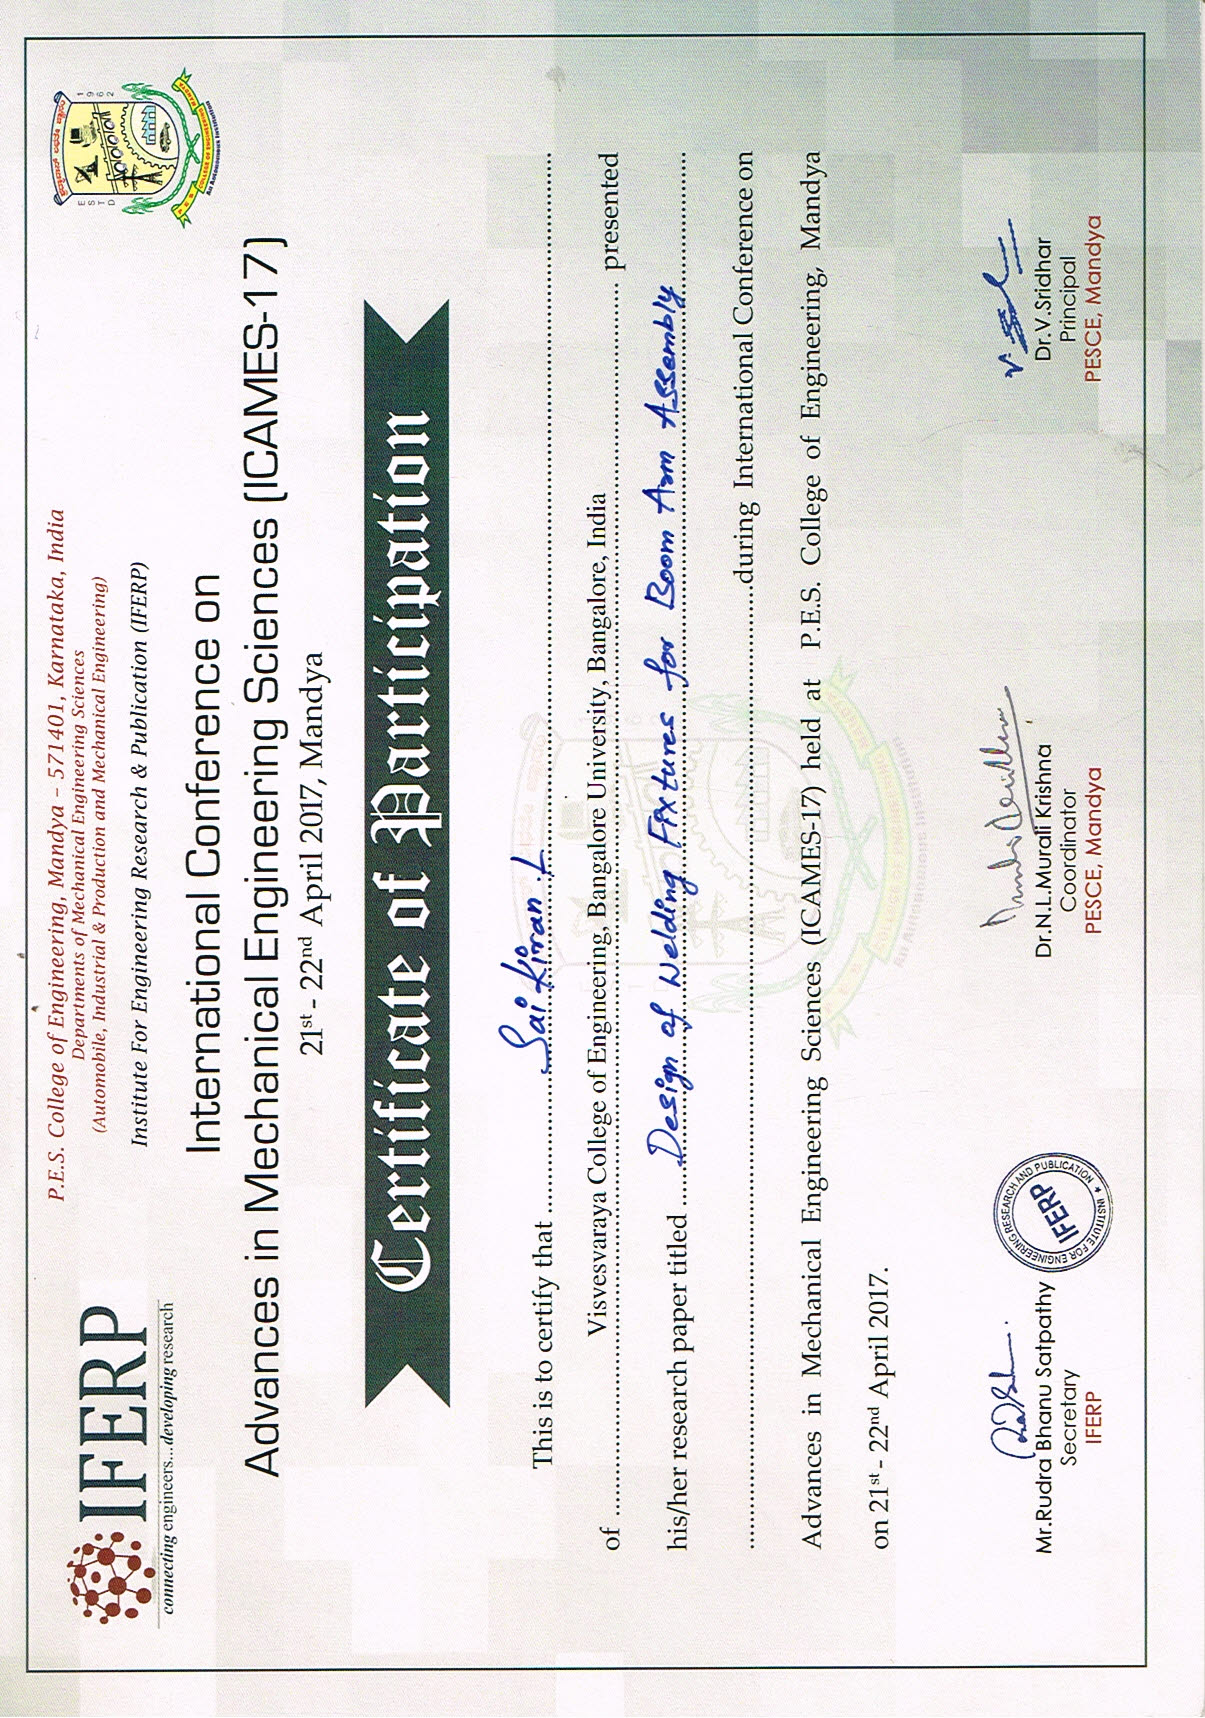 P.E.S. College of Engineering, Mandya – 571401, Karnataka, India
Departments of Mechanical Engineering Sciences
(Automobile, Industrial & Production and Mechanical Engineering)
Institute For Engineering Research & Publication (IFERP)
IFERP
connecting engineers...developing research
ESTD 1962
P E S COLLEGE OF ENGINEERING MANDYA
An Autonomous Institution
International Conference on
Advances in Mechanical Engineering Sciences (ICAMES-17)
21st - 22nd April 2017, Mandya
Certificate of Participation
This is to certify that Sai Kiran .L
of Visvesvaraya College of Engineering, Bangalore University, Bangalore, India presented
his/her research paper titled Design of Welding Fixtures for Boom Arm Assembly
during International Conference on
Advances in Mechanical Engineering Sciences (ICAMES-17) held at P.E.S. College of Engineering, Mandya
on 21st - 22nd April 2017.
INSTITUTE FOR ENGINEERING RESEARCH AND PUBLICATION
IFERP
Mr.Rudra Bhanu Satpathy
Secretary
IFERP
Dr.N.L.Murali Krishna
Coordinator
PESCE, Mandya
Dr.V.Sridhar
Principal
PESCE, Mandya